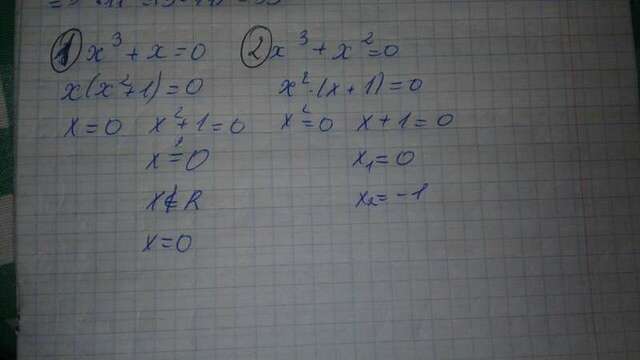 1 x³ + x = 0
x(x²+1) = 0
x = 0 x²+1 = 0
x = 0
x ∉ R
x = 0
2 x³ + x² = 0
x²·(x+1) = 0
x² = 0 x+1 = 0
x₁ = 0
x₂ = -1